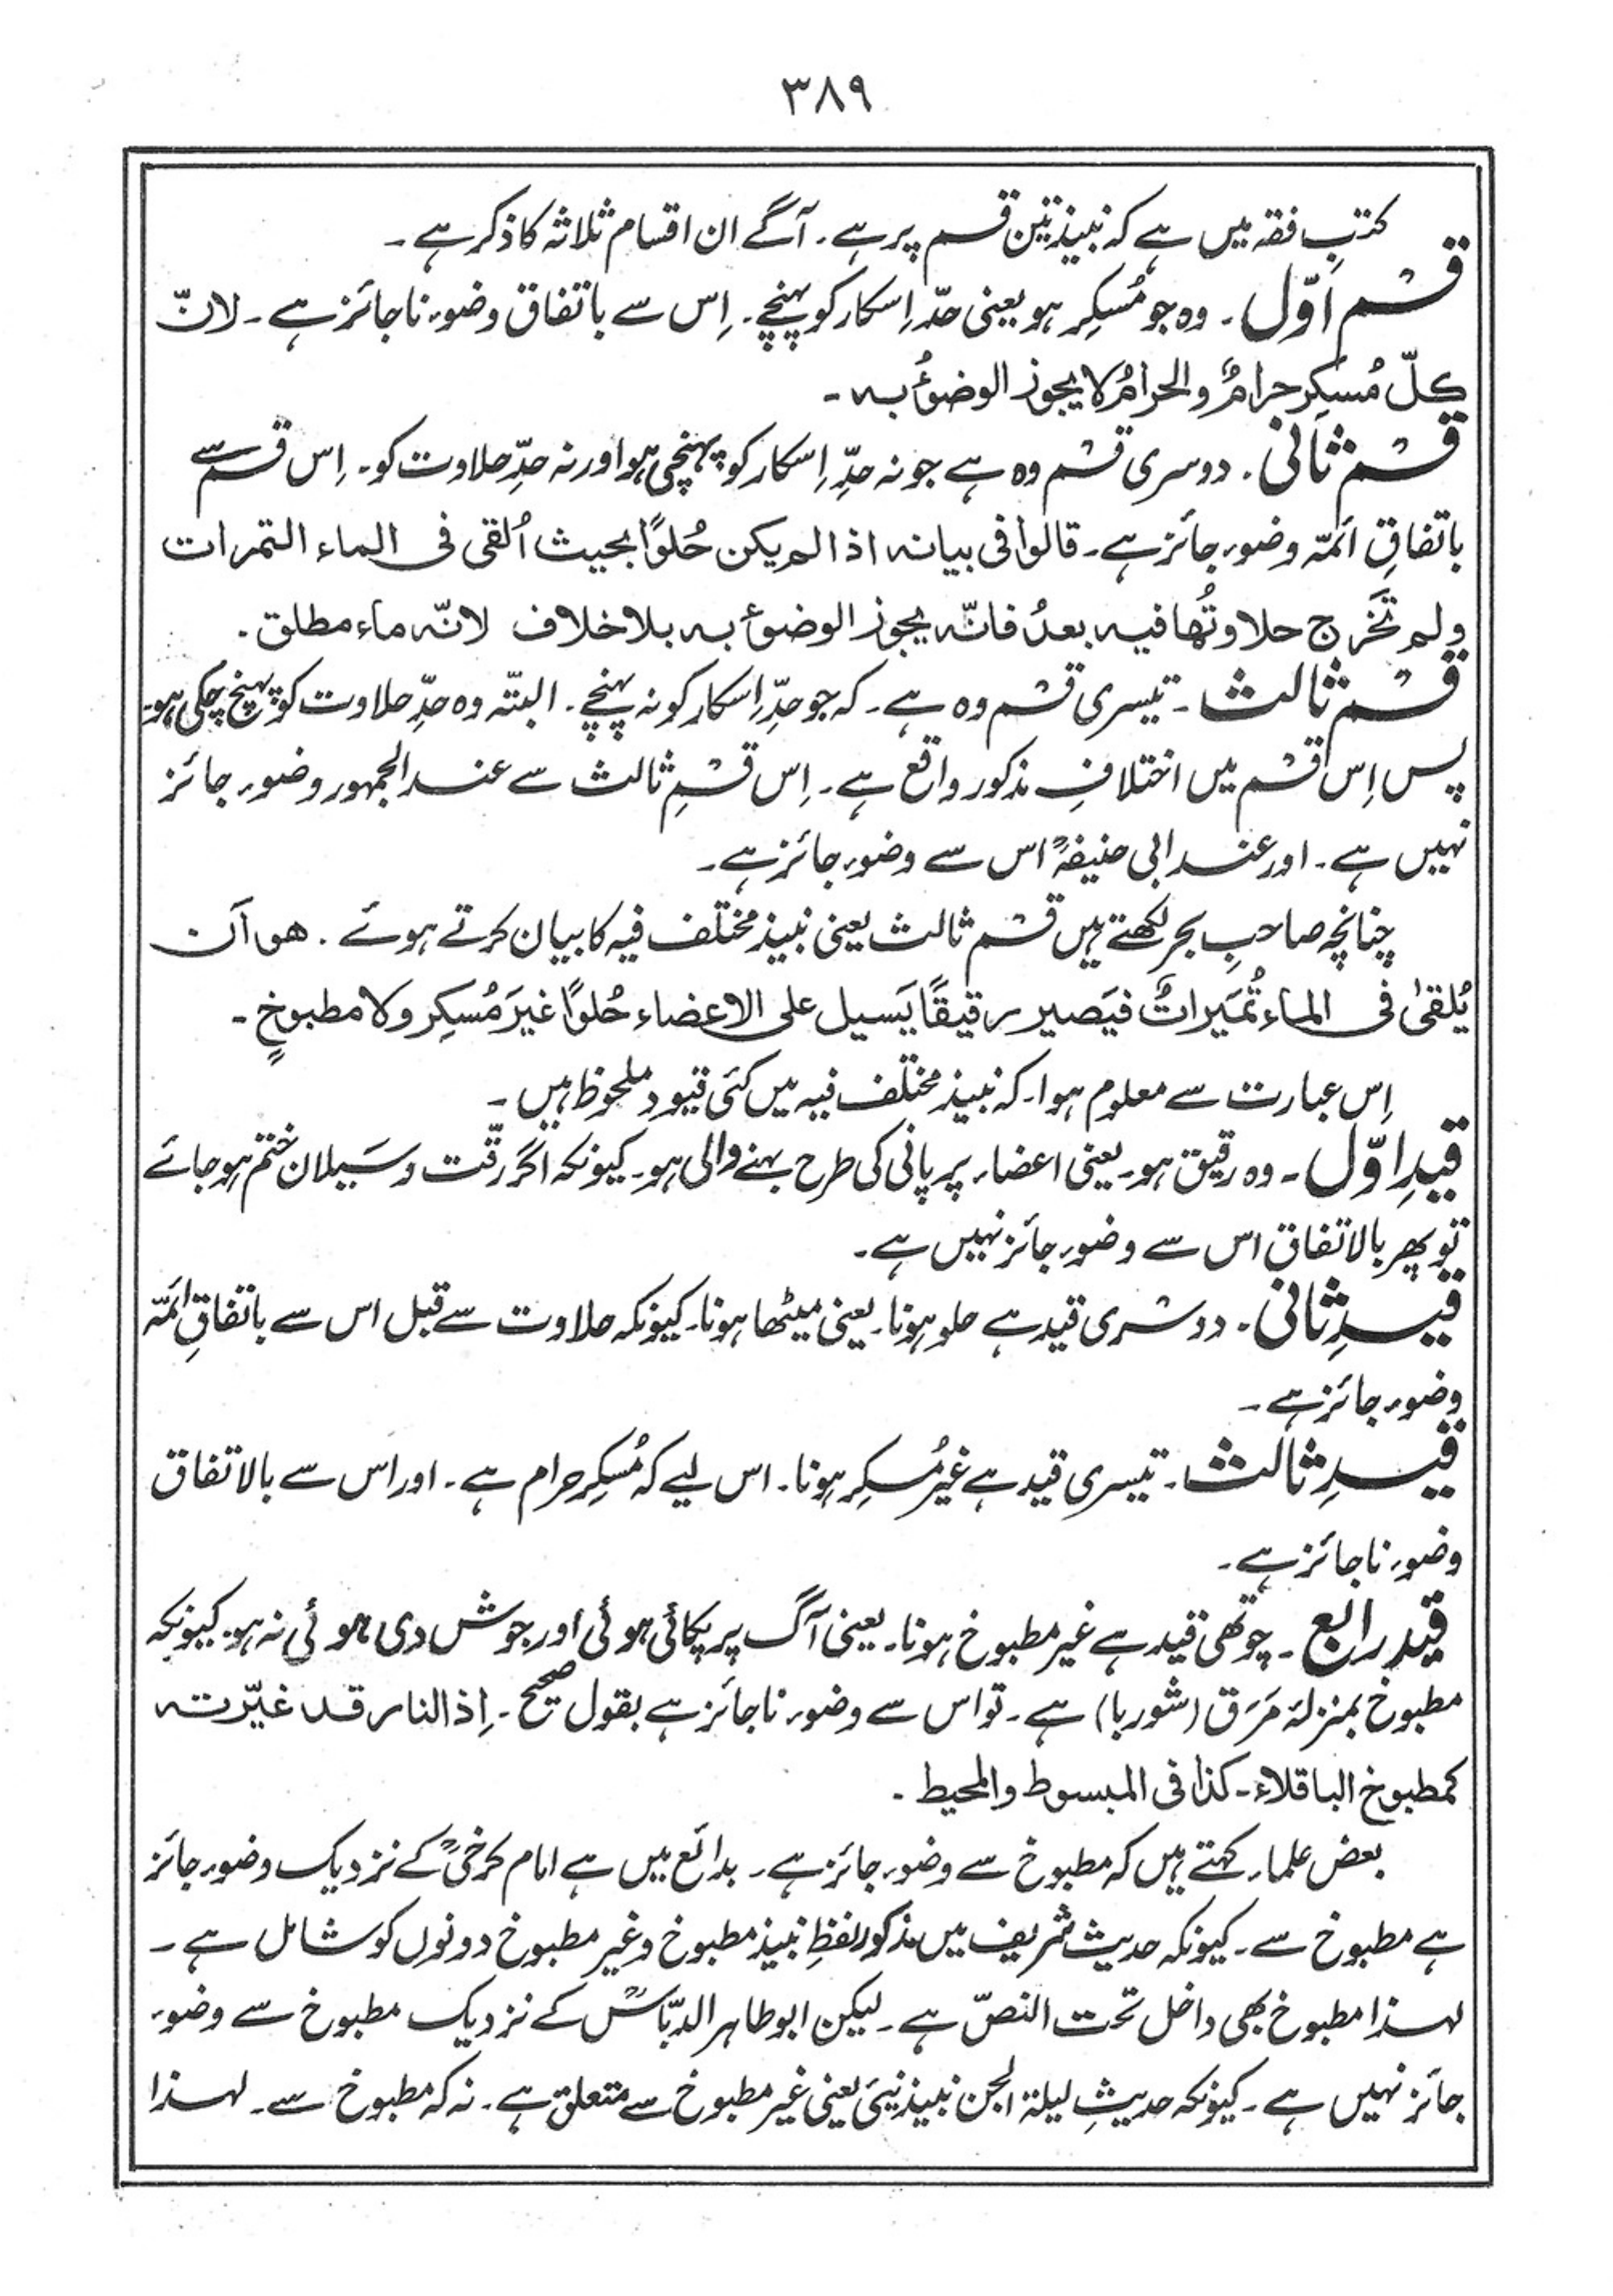 ۳۸۹
کتبِ فقہ میں ہے کہ نبیذ تین قسم پر ہے۔ آگے ان اقسام ثلاثہ کا ذکر ہے۔
قسم اوّل۔ وہ جو مُسکِر ہو یعنی حدِّ اِسکار کو پہنچے۔ اِس سے باتفاق وضوء ناجائز ہے۔ لانّ
کلّ مُسکِر حرامٌ والحرامُ لا یجوز الوضوءُ بہ۔
قسم ثانی۔ دوسری قسم وہ ہے جو نہ حدِّ اِسکار کو پہنچی ہو اور نہ حدِّ حلاوت کو۔ اِس قسم سے
باتفاقِ ائمّہ وضوء جائز ہے۔ قالوا فی بیانہ اذا لم یکن حُلوًا بحیث اُلقی فی الماء التمرات
ولم تَخرج حلاوتُھا فیہ بعدُ فانّہ یجوز الوضوءُ بہ بلا خلاف لانّہ ماء مطلق۔
قسم ثالث۔ تیسری قسم وہ ہے۔ کہ جو حدِّ اِسکار کو نہ پہنچے۔ البتّہ وہ حدِّ حلاوت کو پہنچ چکی ہو۔
پس اِس قسم میں اختلافِ مذکور واقع ہے۔ اِس قسمِ ثالث سے عند الجمہور وضوء جائز
نہیں ہے۔ اور عند ابی حنیفہؒ اس سے وضوء جائز ہے۔
چنانچہ صاحبِ بحر لکھتے ہیں قسم ثالث یعنی نبیذ مختلف فیہ کا بیان کرتے ہوئے۔ ھو اَن
یُلقیٰ فی الماء تُمَیراتٌ فیَصیر رقیقًا یَسیل علی الاعضاء حُلوًا غیرَ مُسکِر ولا مطبوخٍ۔
اِس عبارت سے معلوم ہوا۔ کہ نبیذ مختلف فیہ میں کئی قیود ملحوظ ہیں۔
قیدِ اوّل۔ وہ رقیق ہو۔ یعنی اعضاء پر پانی کی طرح بہنے والی ہو۔ کیونکہ اگر رقّت و سَیلان ختم ہو جائے
تو پھر بالاتفاق اس سے وضوء جائز نہیں ہے۔
قیدِ ثانی۔ دوسری قید ہے حلو ہونا۔ یعنی میٹھا ہونا۔ کیونکہ حلاوت سے قبل اس سے باتفاقِ ائمّہ
وضوء جائز ہے۔
قیدِ ثالث۔ تیسری قید ہے غیرُ مسکِر ہونا۔ اس لیے کہ مُسکِر حرام ہے۔ اور اس سے بالاتفاق
وضوء ناجائز ہے۔
قید رابع۔ چوتھی قید ہے غیر مطبوخ ہونا۔ یعنی آگ پر پکائی ہوئی اور جوش دی ہوئی نہ ہو۔ کیونکہ
مطبوخ بمنزلۂ مَرَق (شوربا) ہے۔ تو اس سے وضوء ناجائز ہے بقول صحیح۔ اِذ النار قد غیّرتہ
کمطبوخ الباقلاء۔ کذا فی المبسوط والمحیط۔
بعض علماء کہتے ہیں کہ مطبوخ سے وضوء جائز ہے۔ بدائع میں ہے امام کرخیؒ کے نزدیک وضوء جائز
ہے مطبوخ سے۔ کیونکہ حدیث شریف میں مذکور لفظِ نبیذ مطبوخ و غیر مطبوخ دونوں کو شامل ہے۔
لہذا مطبوخ بھی داخل تحت النصّ ہے۔ لیکن ابو طاہر الدبّاسؒ کے نزدیک مطبوخ سے وضوء
جائز نہیں ہے۔ کیونکہ حدیثِ لیلۃ الجن نبیذ نیئ یعنی غیر مطبوخ سے متعلق ہے۔ نہ کہ مطبوخ سے۔ لہذا